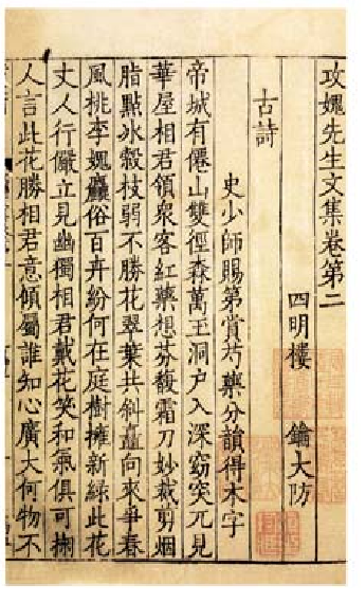 攻媿先生文集卷第二
四明樓　鑰大防
古詩
史少師賜第賞芍藥分韻得木字
帝城有僊山雙徑森萬玉洞户入深窈突兀見
華屋相君領衆客紅藥想芬馥霜刀妙裁剪烟
脂點氷縠枝弱不勝花翠葉共斜矗向來爭春
風桃李媿麤俗百卉紛何在庭樹擁新緑此花
丈人行儼立見幽獨相君戴花笑和氣俱可掬
人言此花勝相君意傾屬誰知心廣大何物不